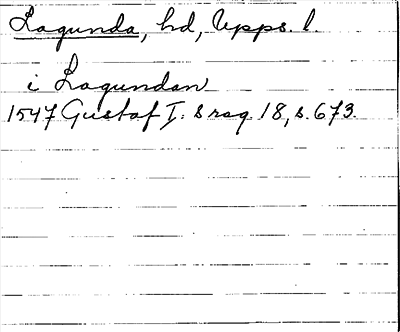 Lagunda, hd, Upps. l.
i Lagundan
1547 Gustaf I:s reg. 18, s. 673.